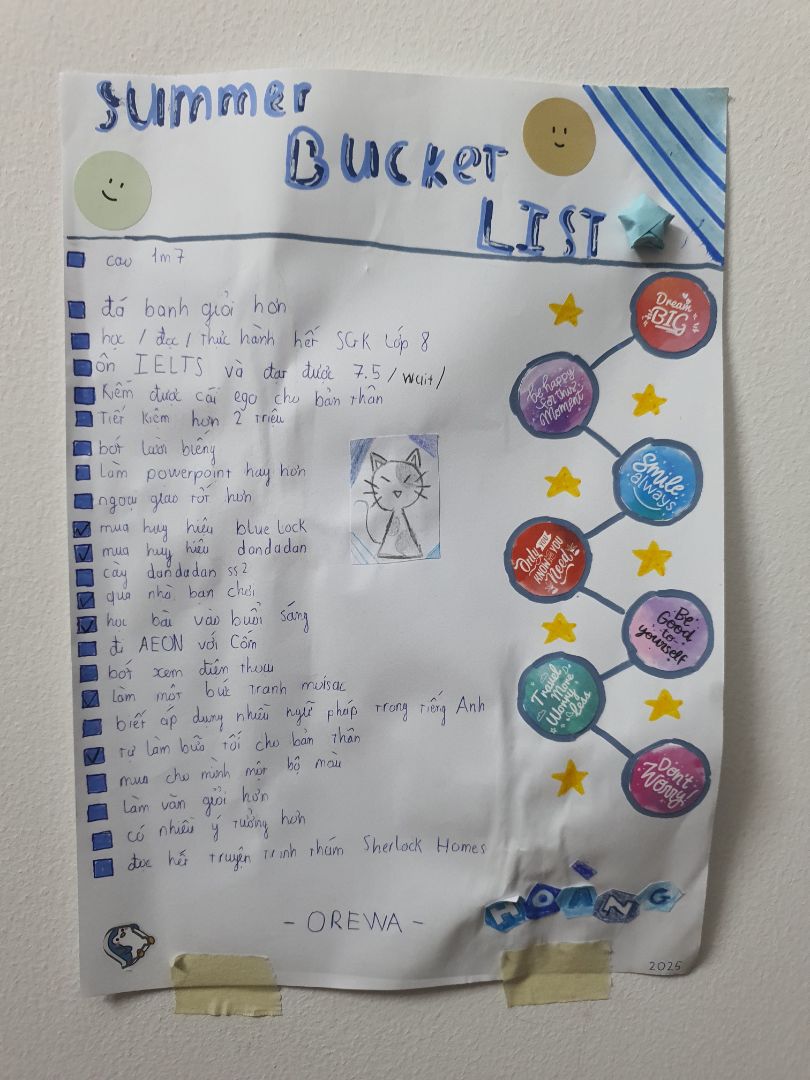 Summer
BUCKET
LIST
cao 1m7
đá banh giỏi hơn
học / đọc / thực hành hết SGK Lớp 8
ôn IELTS và đạt được 7.5 / wait /
Kiếm được cái ego cho bản thân
Tiết kiệm hơn 2 triệu
bớt lười biếng
làm powerpoint hay hơn
ngoại giao tốt hơn
mua huy hiệu blue lock
mua huy hiệu dandadan
cày dandadan ss2
qua nhà bạn chơi
học bài vào buổi sáng
đi AEON với Cốm
bớt xem điện thoại
làm một bức tranh
biết áp dụng nhiều ngữ pháp trong tiếng Anh
tự làm bữa tối cho bản thân
mua cho mình một bộ màu
làm văn giỏi hơn
có nhiều ý tưởng hơn
đọc hết truyện trinh thám Sherlock Homes
Dream
BIG
be happy
for this
Moment
Smile
always
Only YOU
KNOW YOU
Need
Be
Good
to
yourself
Travel
More
Worry
less
Don't
Worry!
- OREWA -
HOÀNG
2025